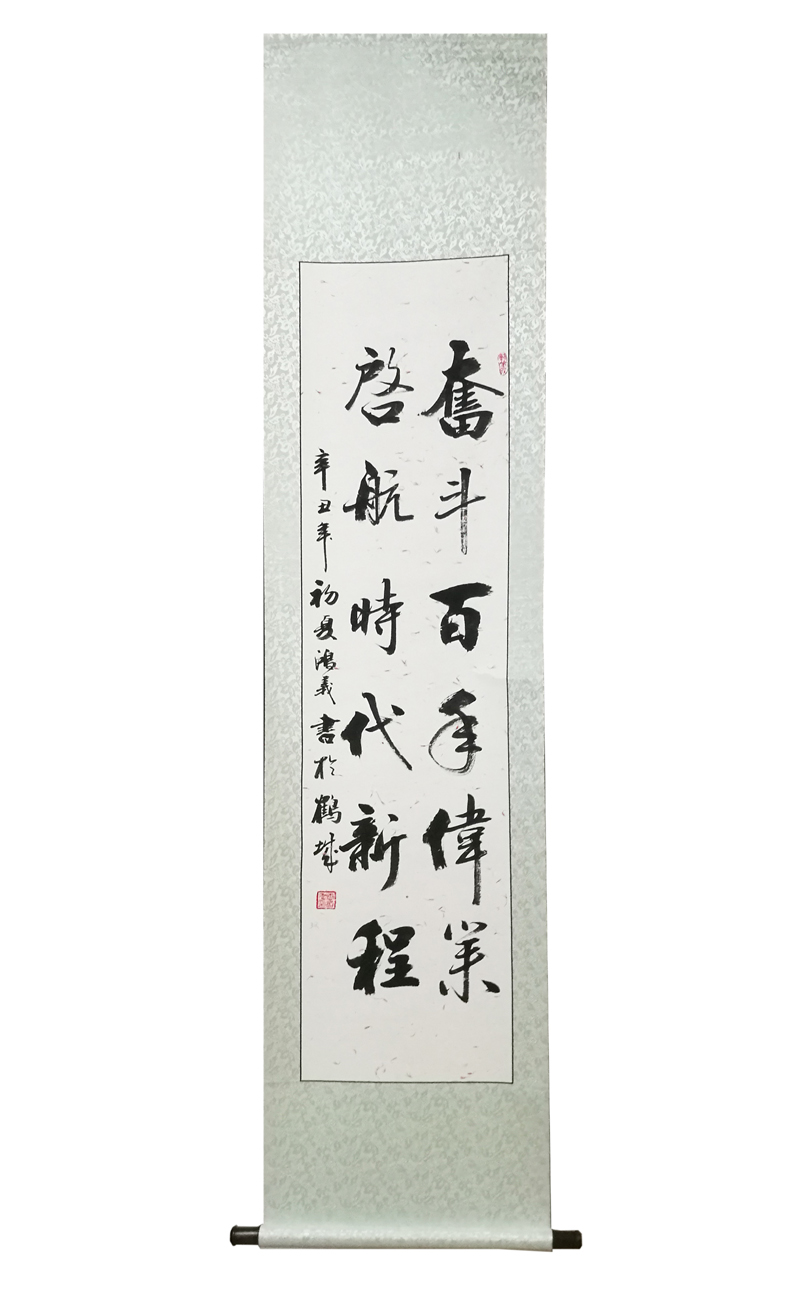 奮斗百年偉業
啓航時代新程
辛丑年初夏鴻義書於鶴城